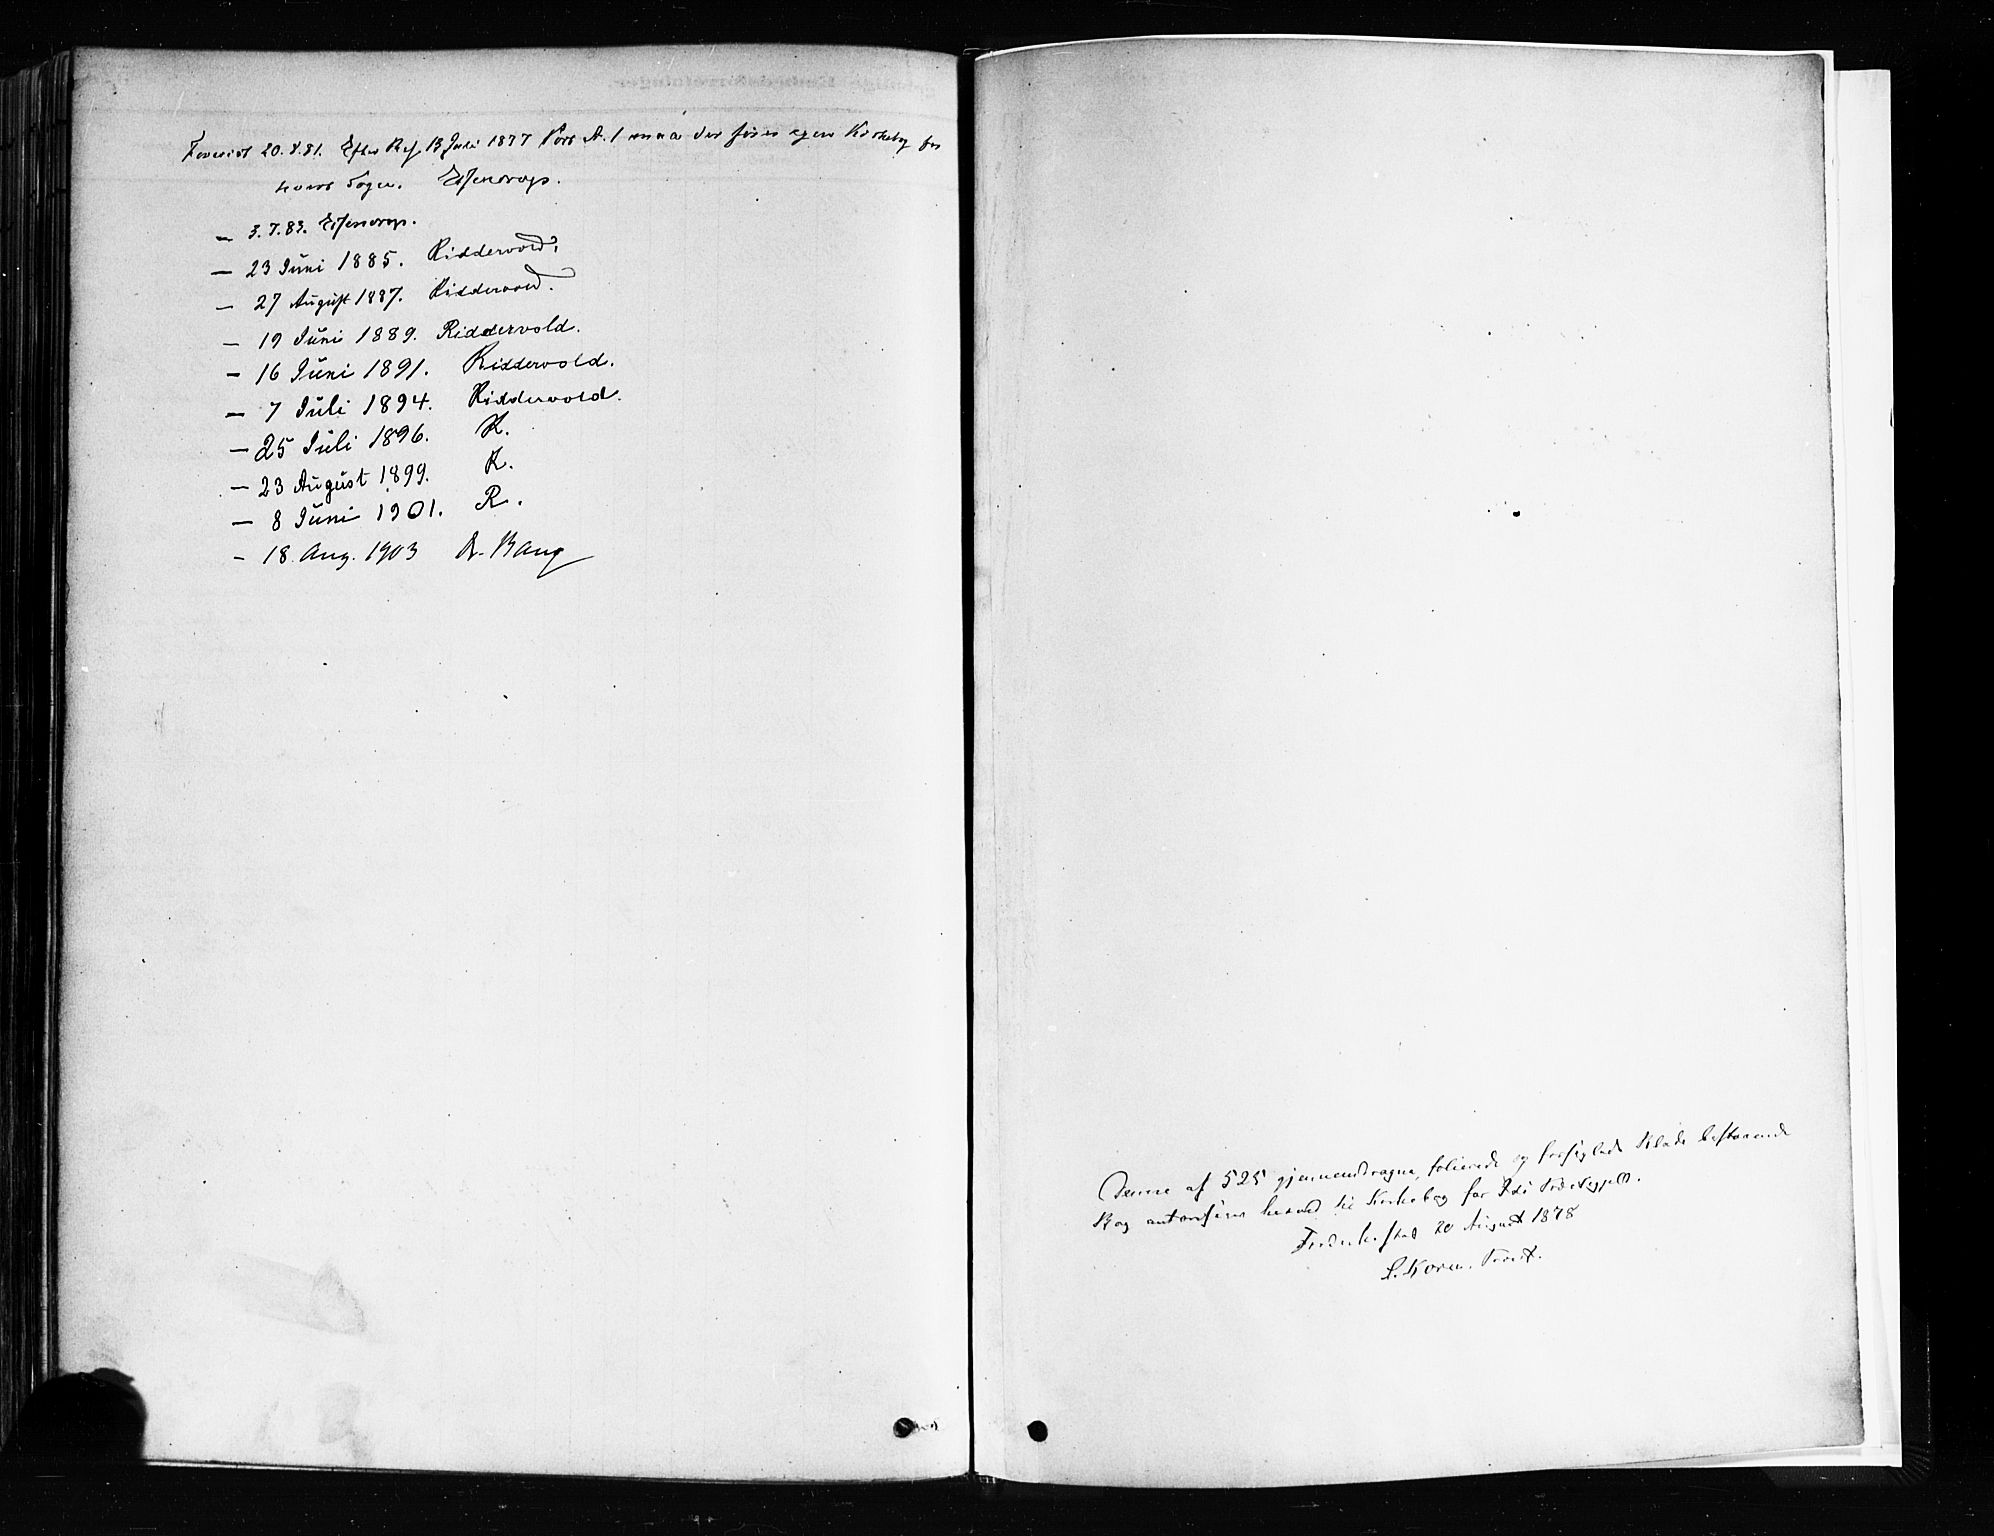 Forevist 20.8.81. Efter Resf 13 Juli 1877 Post A. 1 maa der føres egen Kirkebog for
hvert Sogn. Essendrop.
— 3.7.83. Essendrop.
— 23 Juni 1885. Riddervold.
— 27 August 1887. Riddervold.
— 19 Juni 1889. Riddervold.
— 16 Juni 1891. Riddervold.
— 7 Juli 1894. Riddervold.
— 25 Juli 1896. R.
— 23 August 1899. R.
— 8 Juni 1901. R.
— 18. Aug. 1903 A. Bang
Denne af 525 gjennemdragne, folierede og forseglede Blade bestaaende
Bog autoriseres herved til Kirkebog for Idd Præstegjeld.
Frederikstad 20 August 1878
Koren. Provst.